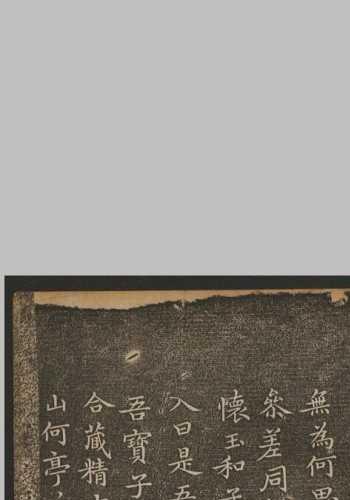 無為何
參差同
懷玉和
入曰是吾
吾寶子
合藏精
山何亭